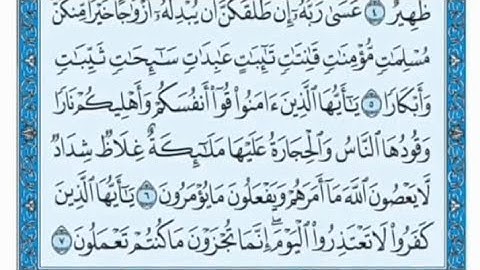 ظَهِيرٌ ٤ عَسَىٰ رَبُّهُۥٓ إِن طَلَّقَكُنَّ أَن يُبْدِلَهُۥٓ أَزْوَٰجًا خَيْرًا مِّنكُنَّ
مُسْلِمَٰتٍ مُّؤْمِنَٰتٍ قَٰنِتَٰتٍ تَٰٓئِبَٰتٍ عَٰبِدَٰتٍ سَٰٓئِحَٰتٍ ثَيِّبَٰتٍ
وَأَبْكَارًا ٥ يَٰٓأَيُّهَا ٱلَّذِينَ ءَامَنُوا۟ قُوٓا۟ أَنفُسَكُمْ وَأَهْلِيكُمْ نَارًا
وَقُودُهَا ٱلنَّاسُ وَٱلْحِجَارَةُ عَلَيْهَا مَلَٰٓئِكَةٌ غِلَاظٌ شِدَادٌ
لَّا يَعْصُونَ ٱللَّهَ مَآ أَمَرَهُمْ وَيَفْعَلُونَ مَا يُؤْمَرُونَ ٦ يَٰٓأَيُّهَا ٱلَّذِينَ
كَفَرُوا۟ لَا تَعْتَذِرُوا۟ ٱلْيَوْمَ ۖ إِنَّمَا تُجْزَوْنَ مَا كُنتُمْ تَعْمَلُونَ ٧